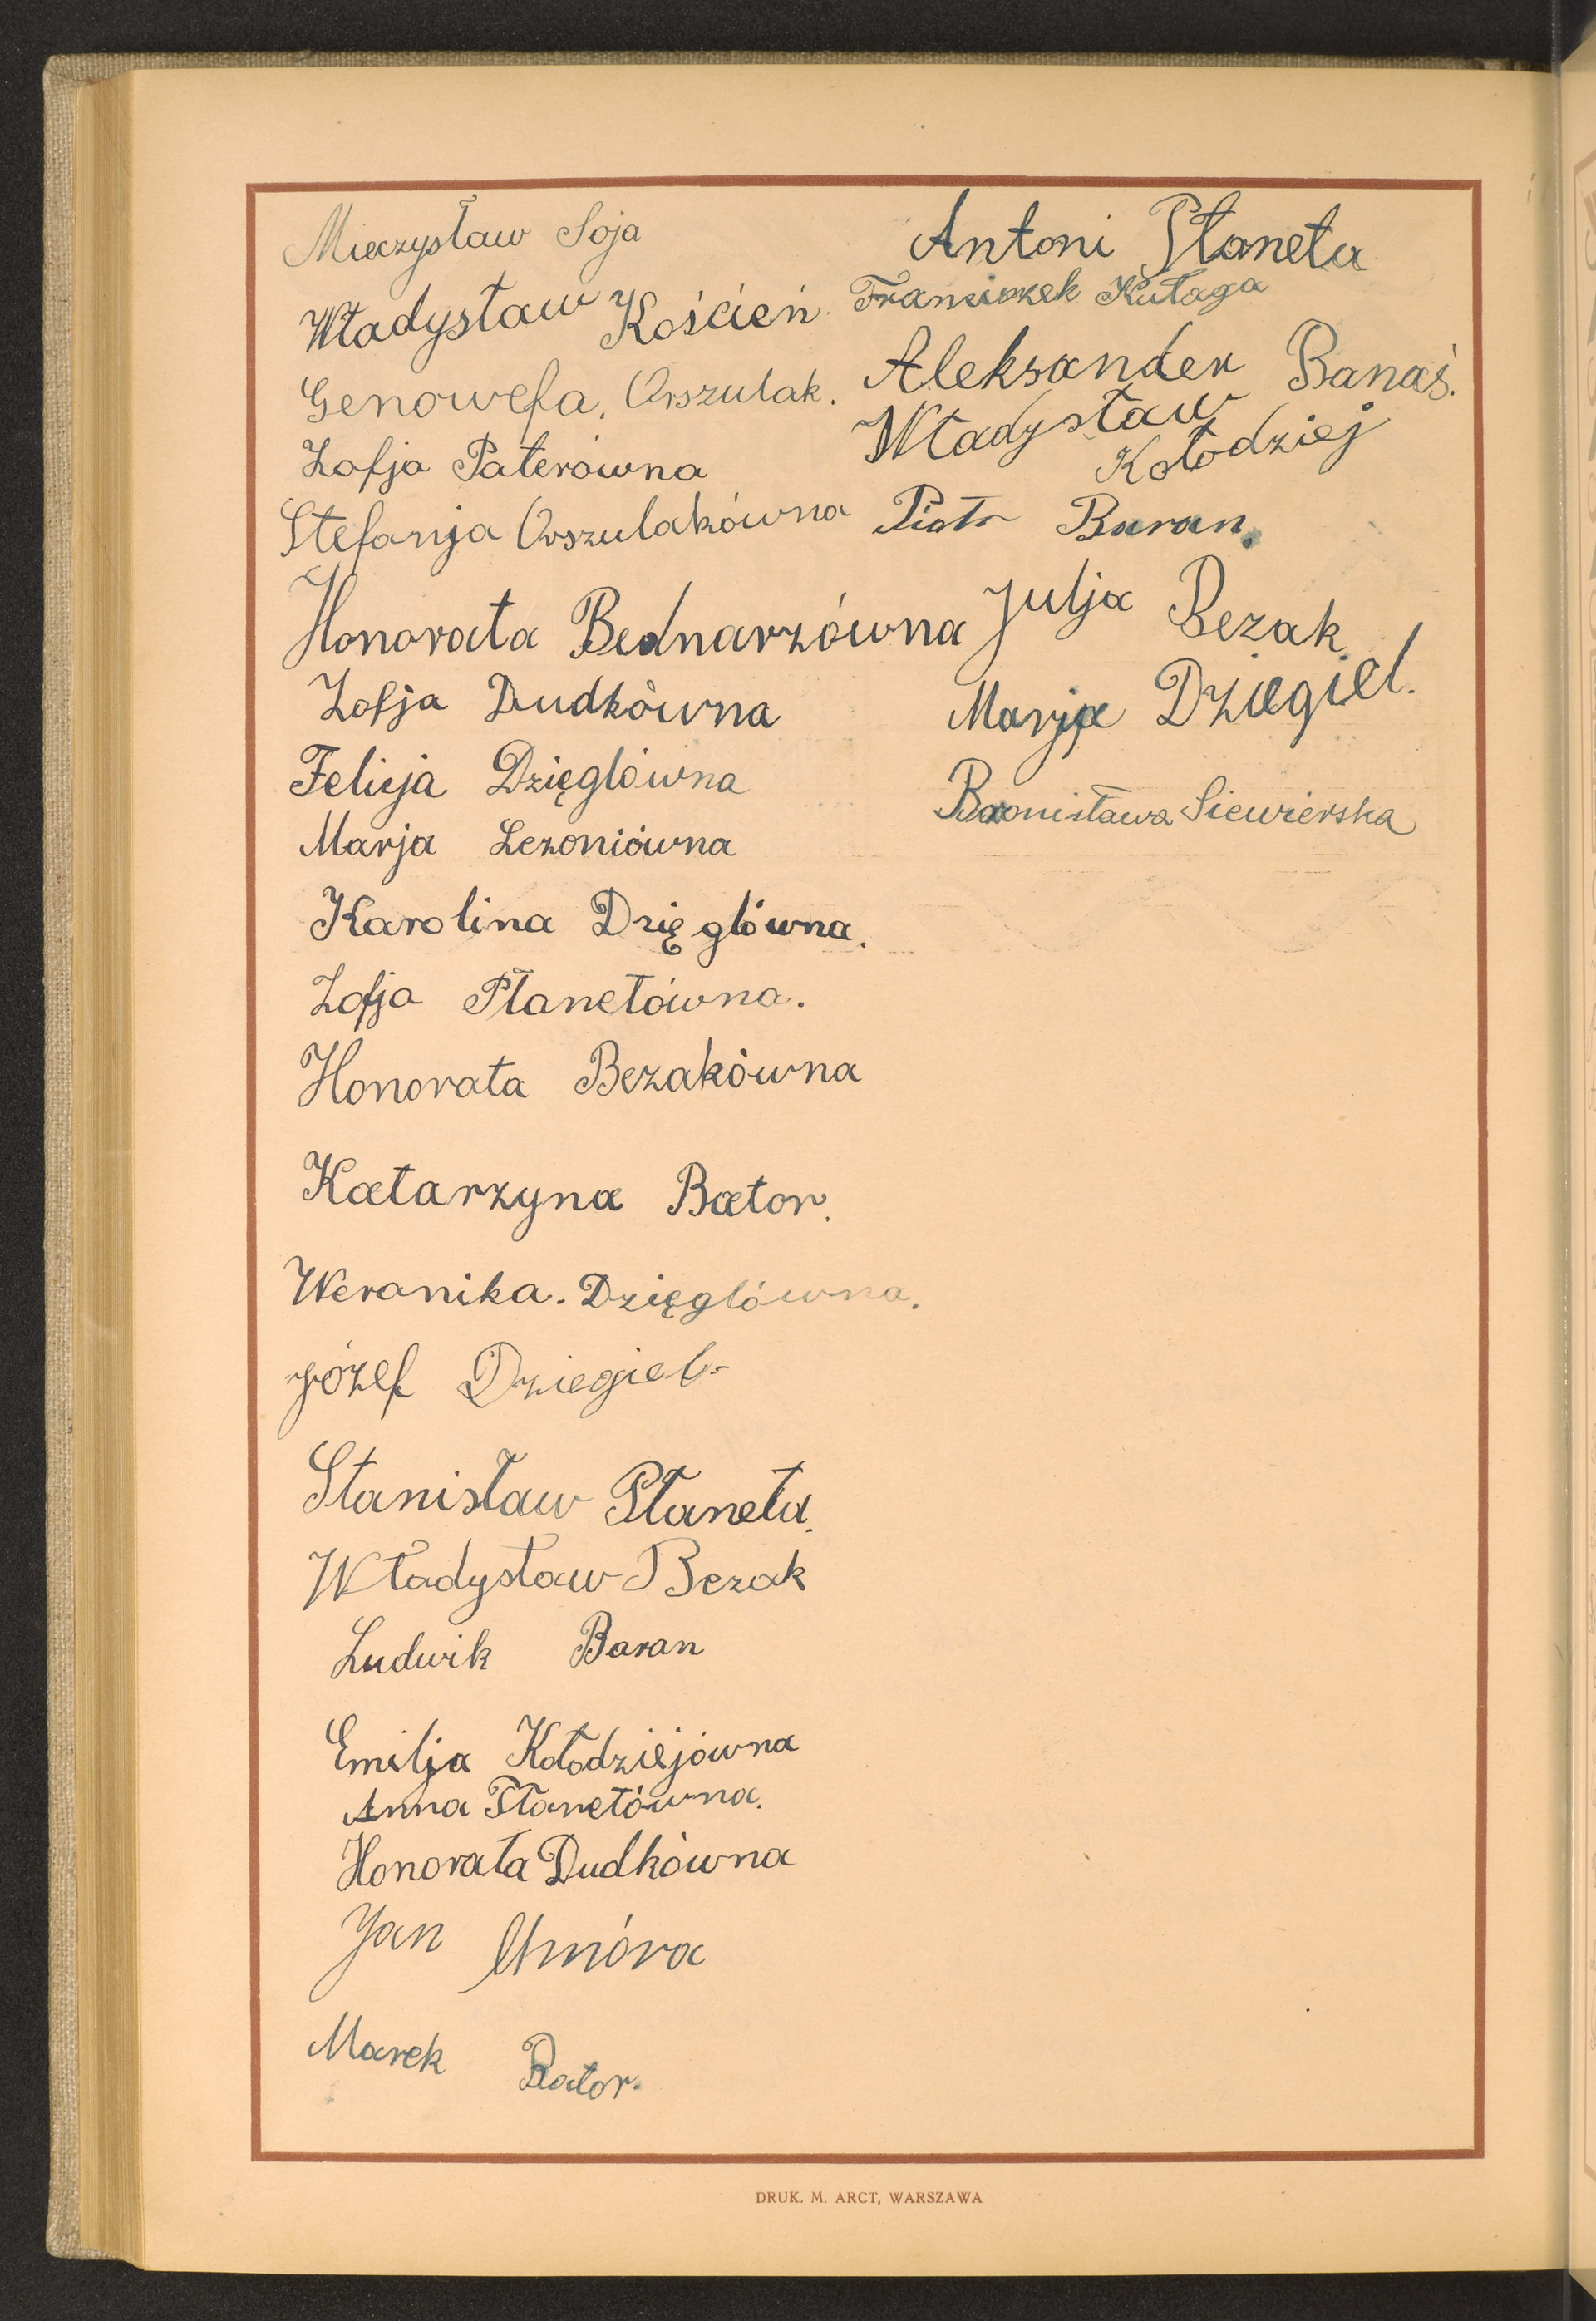 Mieczysław Soja
Władysław Koścień.
Genowefa. Orszulak.
Zofja Paterówna
Stefanja Orszulakówna
Honorata Bednarzówna
Zofja Dudkówna
Felicja Dzięglówna
Marja Lezoniówna
Karolina Dzięglówna.
Zofja Płanetówna.
Honorata Bezakówna
Katarzyna Bator.
Weranika. Dzięglówna.
Józef Dziegiel
Stanisław Płaneta.
Władysław Bezak
Ludwik Baran
Emilja Kołodziejówna
Anna Płanetówna.
Honorata Dudkówna
Jan
Marek Bator.
Antoni Płaneta
Franciszek Kułaga
Aleksander Banaś.
Władysław
Kołodziej
Piotr Baran.
Julja Bezak
Marja Dziegiel.
Bronisława Siewierska
DRUK. M. ARCT, WARSZAWA